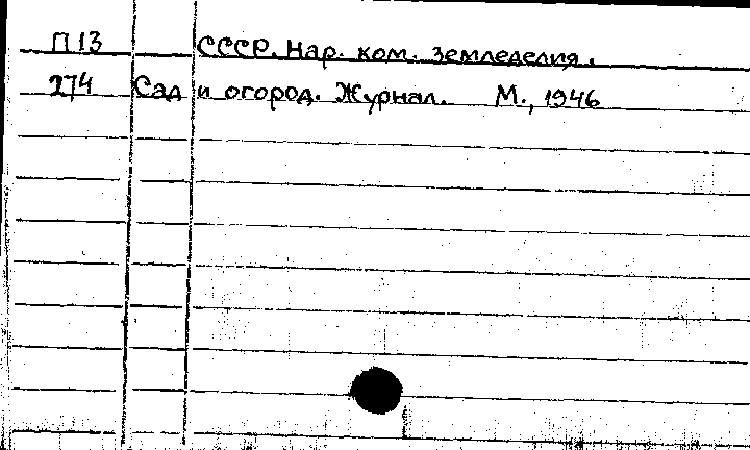 П13 СССР. Нар. ком. земледелия.
274 Сад и огород. Журнал. М., 1946